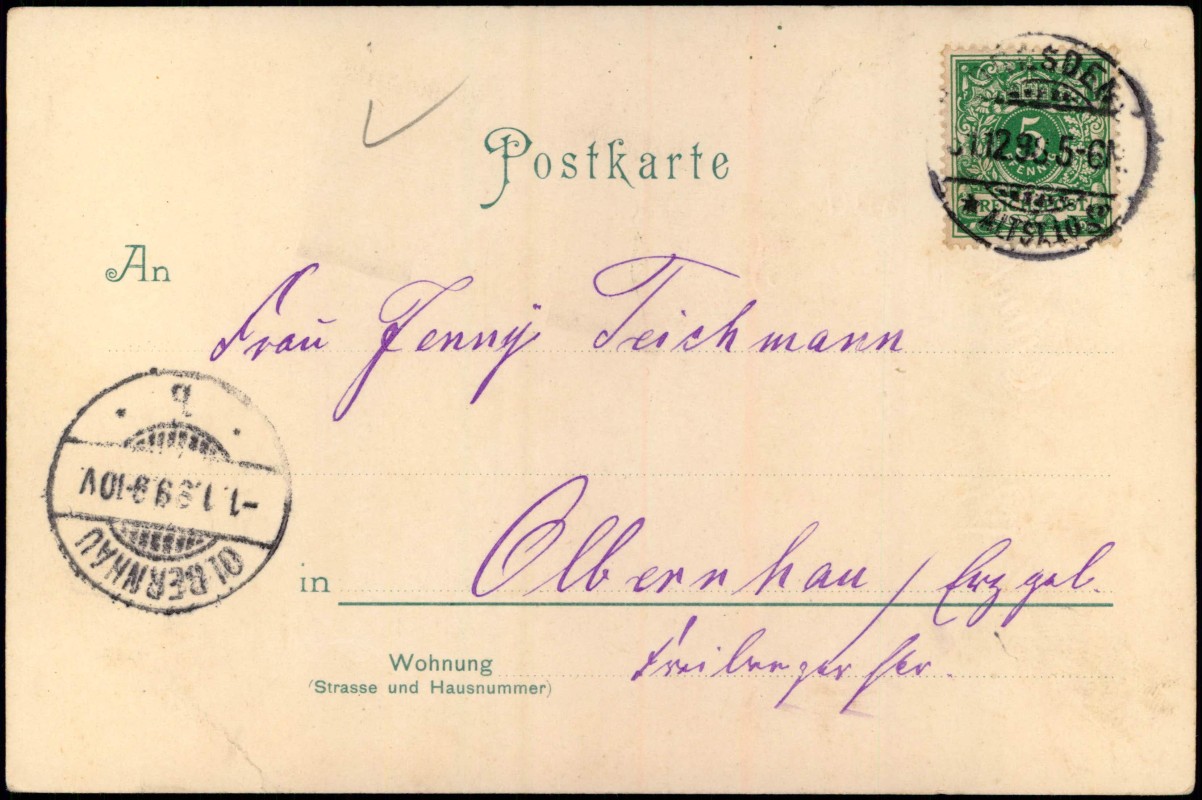 Postkarte
5
PFENNIG
REICHSPOST
DRESDEN
31.12.98.5-6N.
* ALTST.10 c
An
Frau Jenny Teichmann
b
-1.1.99.9-10V.
OLBERNHAU
in Olbernhau / Erzgeb.
Wohnung
(Strasse und Hausnummer)
Freiberger Str.